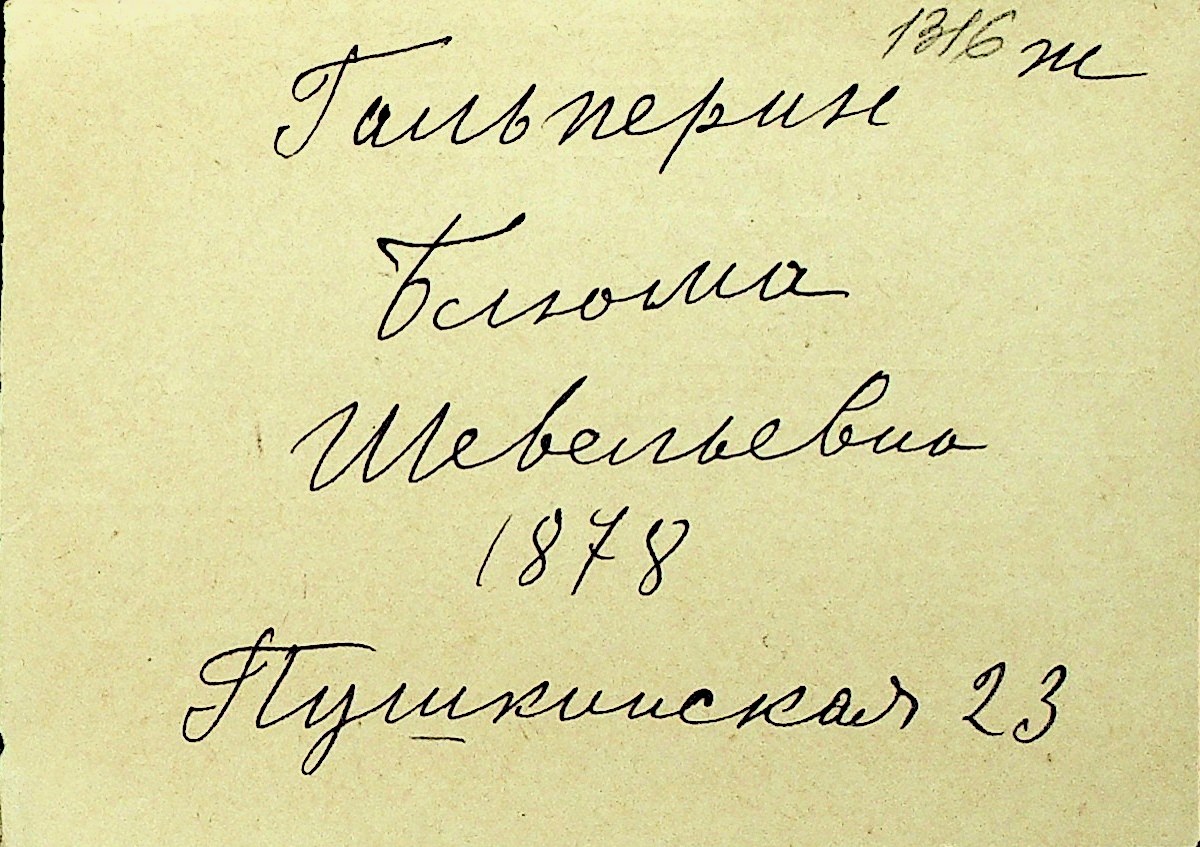 1316 ж
Гальперин
Блюма
Шевельевна
1878
Пушкинская 23